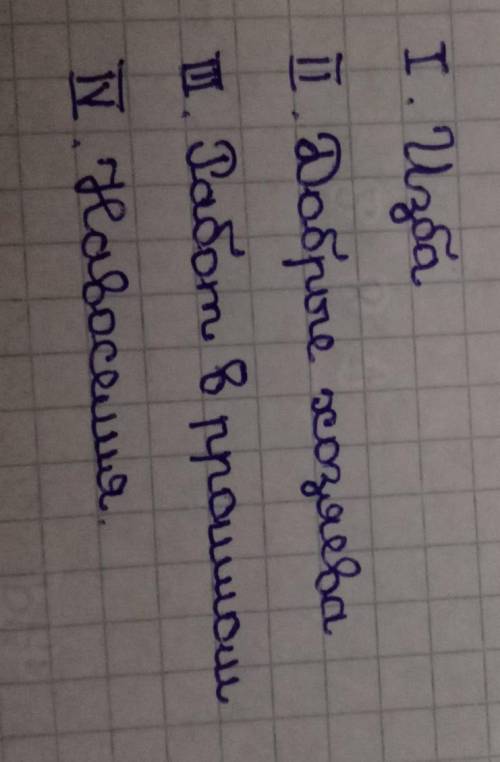 I. Изба
II. Добрые хозяева
III. Работ в прошлом
IV. Навоселия.